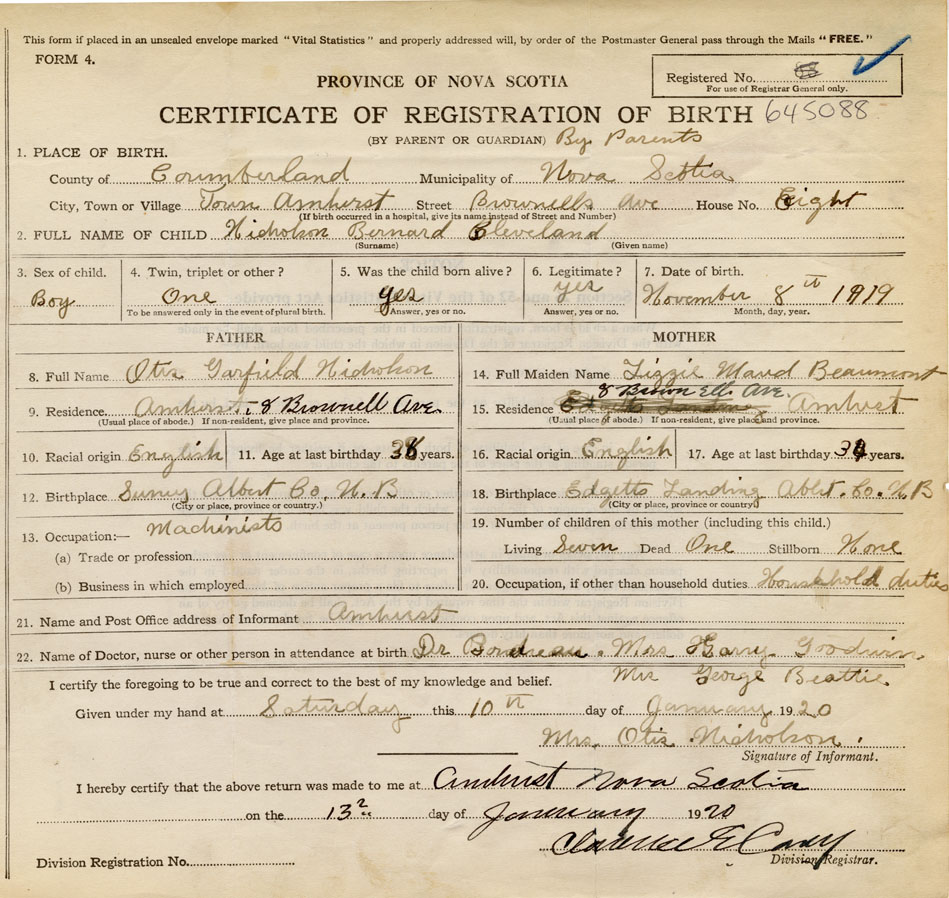 This form if placed in an unsealed envelope marked "Vital Statistics" and properly addressed will, by order of the Postmaster General pass through the Mails "FREE."
FORM 4.
PROVINCE OF NOVA SCOTIA
Registered No.
For use of Registrar General only.
CERTIFICATE OF REGISTRATION OF BIRTH 645088
(BY PARENT OR GUARDIAN) By Parents
1. PLACE OF BIRTH.
County of Coumberland Municipality of Nova Scotia
City, Town or Village Town Amherst Street Brownells Ave House No. Eight
(If birth occurred in a hospital, give its name instead of Street and Number)
2. FULL NAME OF CHILD Nicholson Bernard Cleveland
(Surname) (Given name)
3. Sex of child. 4. Twin, triplet or other? 5. Was the child born alive? 6. Legitimate? 7. Date of birth.
Boy One yes yes November 8th 1919
To be answered only in the event of plural birth. Answer, yes or no. Answer, yes or no. Month, day, year.
FATHER
8. Full Name Otis Garfield Nicholson
9. Residence Amherst, 8 Brownell Ave.
(Usual place of abode.) If non-resident, give place and province.
10. Racial origin English 11. Age at last birthday 38 years.
12. Birthplace Surrey Albert Co, N.B
(City or place, province or country.)
13. Occupation:— Machinists
(a) Trade or profession
(b) Business in which employed
MOTHER
14. Full Maiden Name Lizzie Maud Beaumont
8 Brownell Ave.
15. Residence Amherst
(Usual place of abode.) If non-resident, give place and province.
16. Racial origin English 17. Age at last birthday years.
18. Birthplace Edgetts Landing Ablrt. Co. N.B
(City or place, province or country)
19. Number of children of this mother (including this child.)
Living Seven Dead One Stillborn None
20. Occupation, if other than household duties Household duties
21. Name and Post Office address of Informant Amherst
22. Name of Doctor, nurse or other person in attendance at birth Dr Boudreau. Mrs Harry Goodwin.
Mrs George Beattie
I certify the foregoing to be true and correct to the best of my knowledge and belief.
Given under my hand at Saturday this 10th day of January 1920
Mrs. Otis Nicholson.
Signature of Informant.
I hereby certify that the above return was made to me at Amherst Nova Scotia
on the 13 day of January 1920
Clarence E Casey
Division Registrar.
Division Registration No.